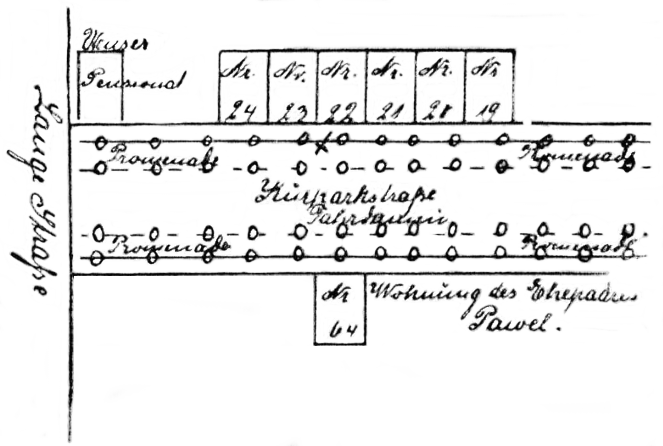 Weuser
Pensionat
Nr. 24
Nr. 23
Nr. 22
Nr. 21
Nr. 20
Nr 19
Promenade
Promenade
Kurparkstraße
Fahrdamm
Promenade
Promenade
Lange Straße
Nr 64
Wohnung des Ehepaares
Pawel.